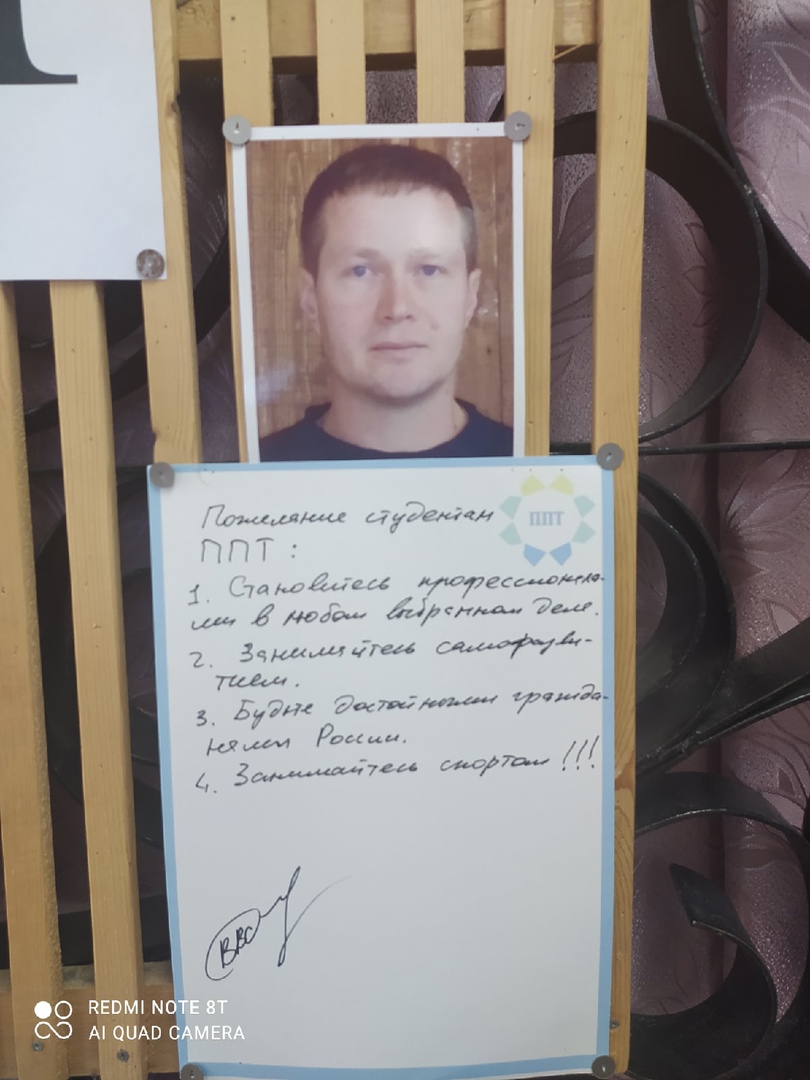 Пожелание студентам
ППТ
ППТ :
1. Становитесь профессионала-
ми в любом выбранном деле.
2. Занимайтесь саморазви-
тием.
3. Будте достойными гражда-
нами России.
4. Занимайтесь спортом !!!
REDMI NOTE 8T
AI QUAD CAMERA